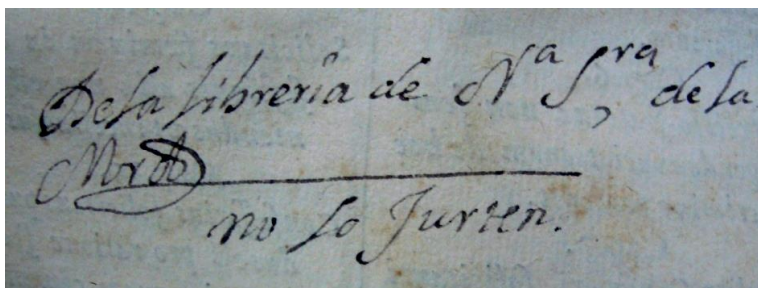 De la libreria de Nª Sra, de la
Mrd
no lo Jurten.